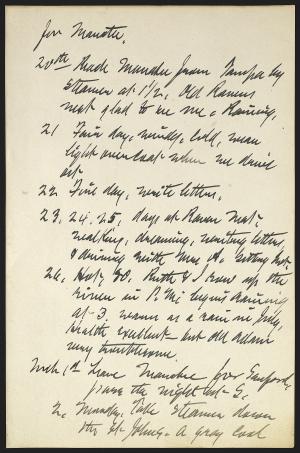 for Manatee.
20th Reach Manatee from Tampa by
Steamer at 1½, Old Ravens
nest glad to see me, Raining.
21 Fair day, windy, cold, wear
light over coat when we drive
out
22. Fine day, write letters.
23, 24, 25, days at Raven Nest,
walking, dreaming, writing letters,
& driving with Mrs
26, Hot, 80. Ruth & I row up the
river in P.M. begins raining
at 3. warm as a rain in July,
health excellent but old
very troublesome.
Mch, 1st Leave Manatee for Sanford,
pass the night at S.
2, Monday, Take Steamer down
the St Johns. A gray cool